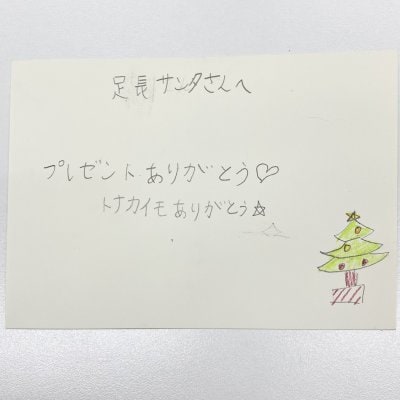 足長サンタさんへ
プレゼントありがとう♡
トナカイモありがとう☆